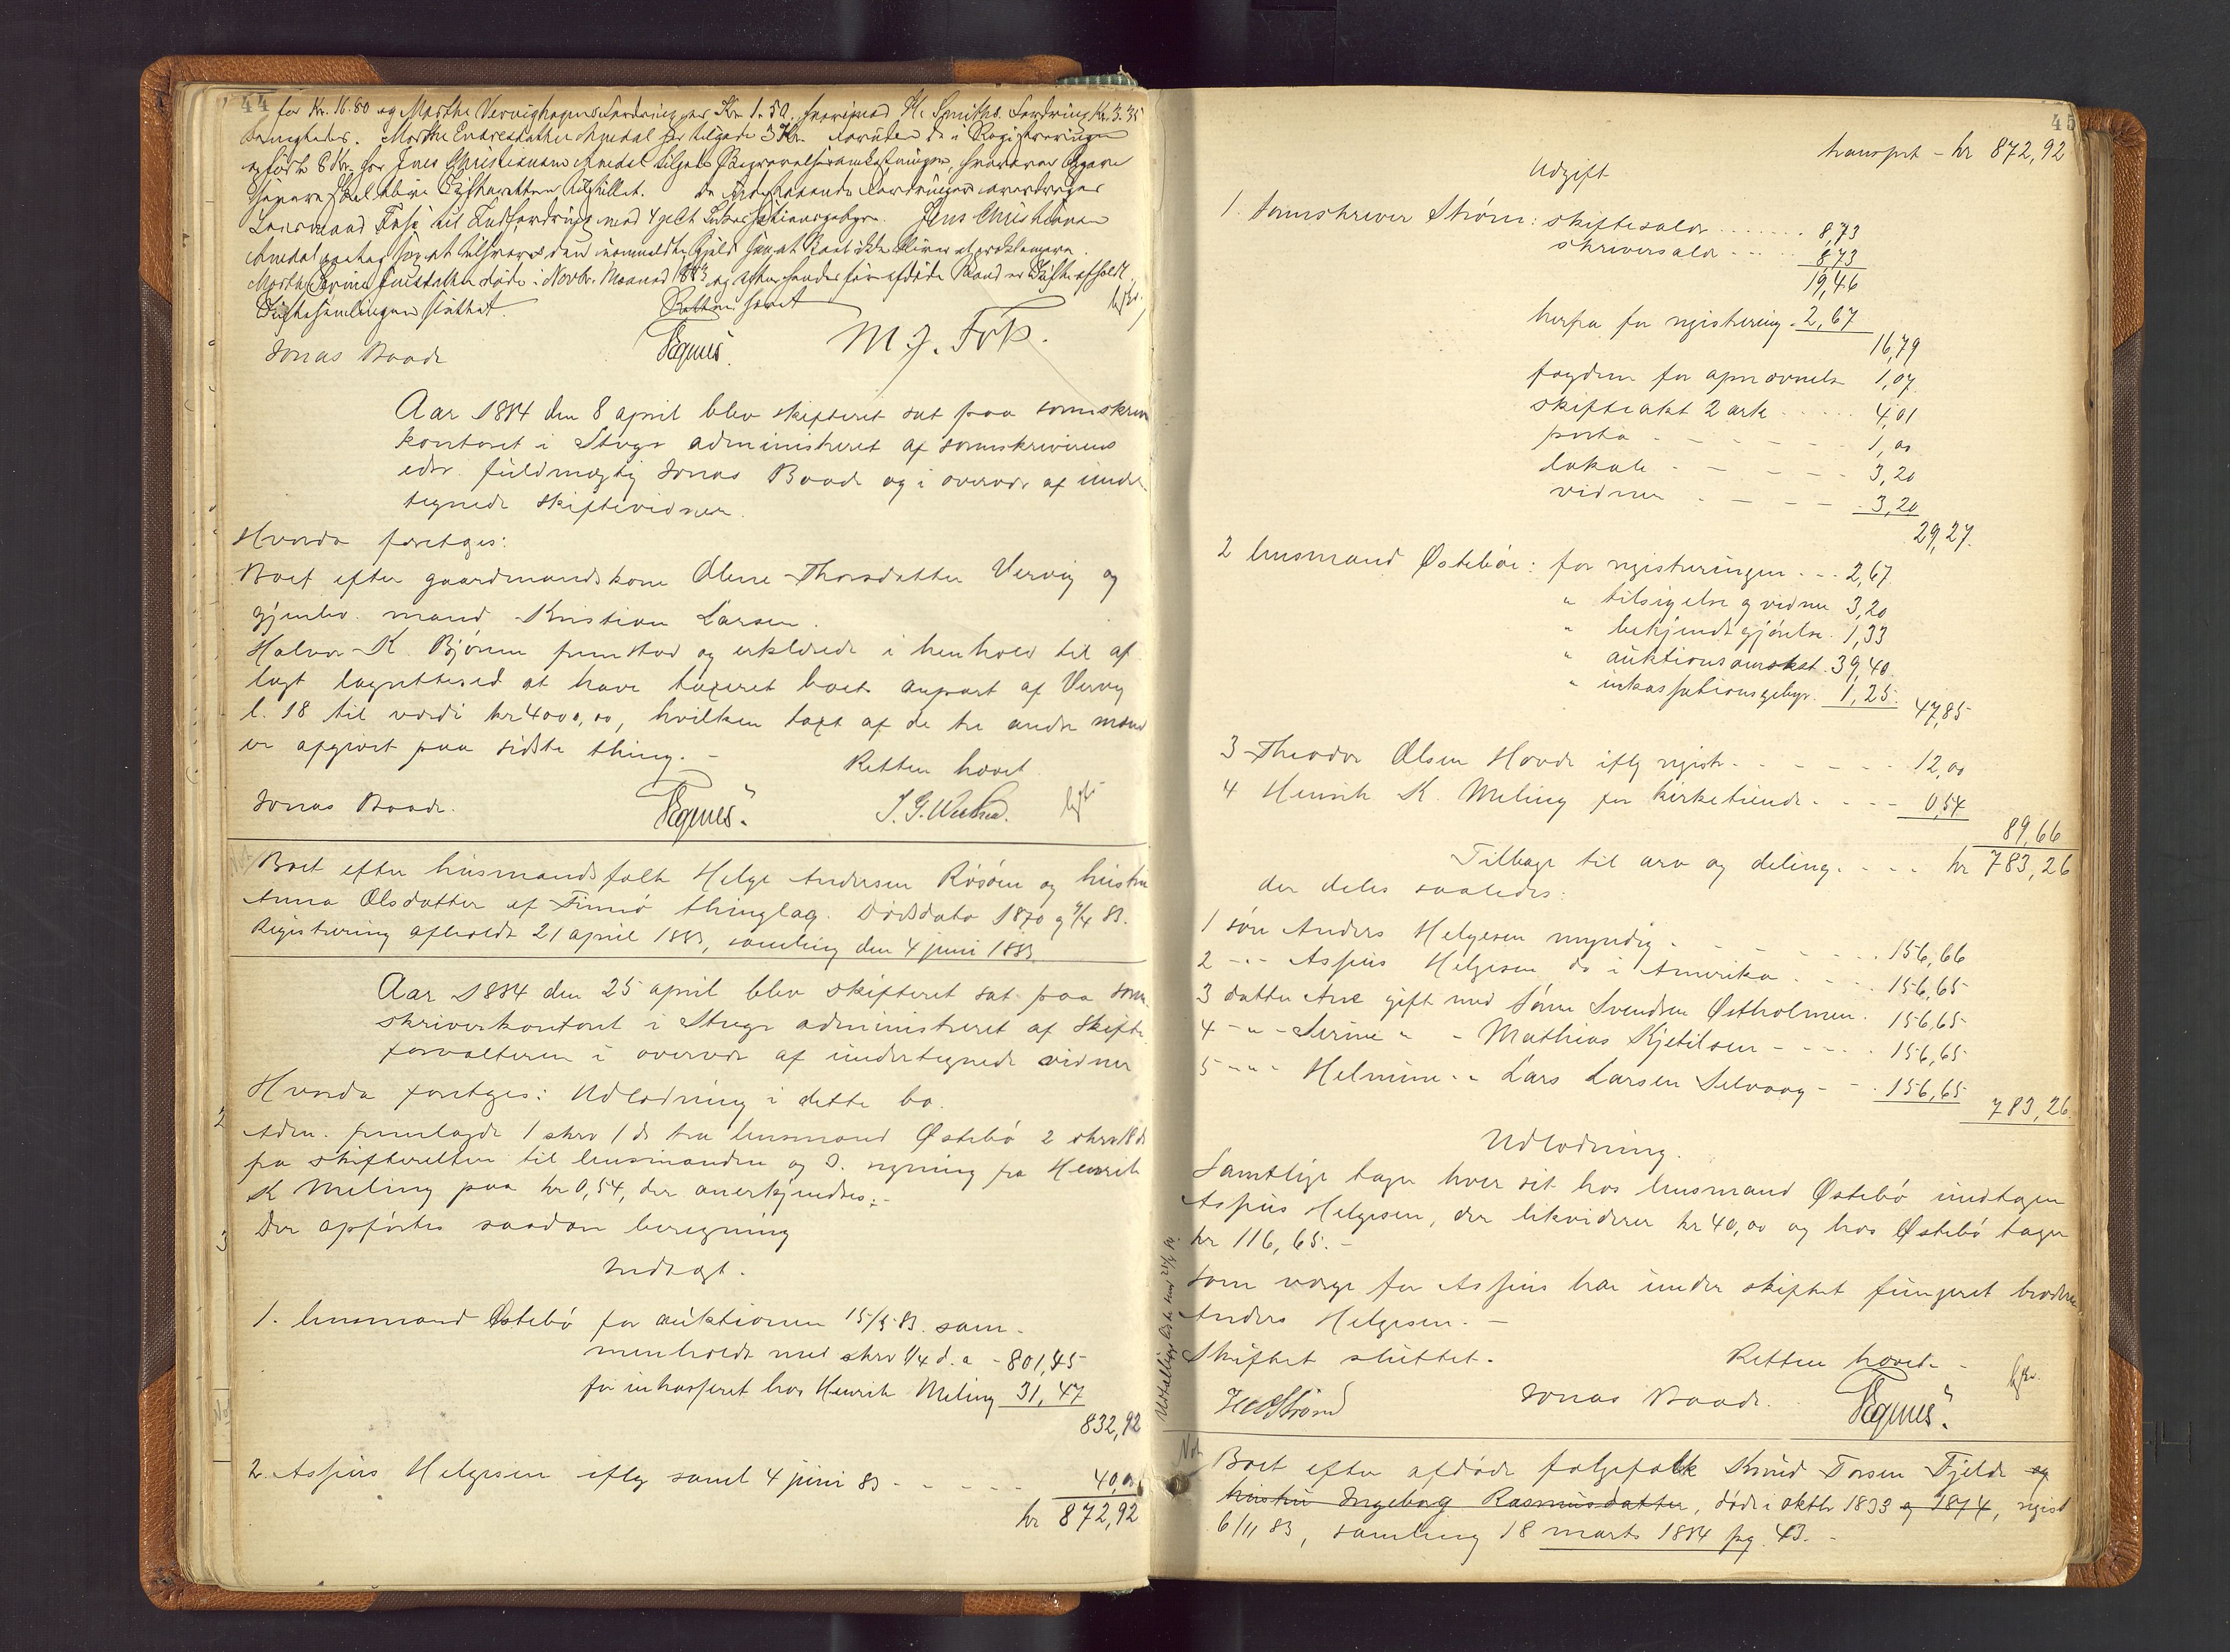 44
for Kr. 16.80 og Marthe Vervighagens Fordring er Kr. 1.50. hvorimod H. Smiths Fordring Kr. 3.35
benegtedes. Marthe Endresdatter Avedal har tilgode 3 Kr. foruden de i Registreringen
opførte 8 Kr. for Jens Christiansen Avedal tilgode Begravelsesomkostninger, hvorover Opgave
senere skal blive Skifteretten tilstillet. De udestaaende Fordringer overdrages
Lensmand Foss til Indfordring mod 4 pCt Inkassationsgebyr. Jens Christiansen
Avedal paatog sig at tilsvare den anmeldte Gjæld saa at Boet ikke bliver at proklamere.
Marthe Serine Jensdatter døde i Novbr. Maaned 1883 og efter hendes før afdøde Mand er Skifte afholdt.
Skiftesamlingen sluttet. Retten hævet
Jonas Baade Egnes. M. J. Foss.
Aar 1884 den 8 april blev skifteret sat paa sorenskriver
kontoret i Stuge administreret af sorenskriverens
edsv. fuldmægtig Jonas Baade og i overvær af under
tegnede skiftevidner.
Hvorda foretoges:
Boet efter gaardmandskone Olene Thorsdatter Vervig og
gjenlev. mand Kristian Larsen.
Halvor K. Bjørnen fremstod og erklærede i henhold til af
lagt lagrettesed at have taxeret boets anpart af Vervig
l. 18 til værdi kr 4000,00, hvilken taxt af de tre andre mænd
er afgivet paa sidste thing. –
Retten hævet
Jonas Baade. Egnes.
Boet efter husmandsfolk Helge Andersen Røsøen og hustru
Anna Olsdatter af Finnø thinglag. Dødsdato 1870 og 4/4 83.
Registrering afholdt 21 april 1883, samling den 4 juni 1883.
Aar 1884 den 25 april blev skifteret sat paa soren
skriverkontoret i Stuge administreret af skifte
forvalteren i overvær af undertegnede vidner
Hvorda foretoges: Udlodning i dette bo.
Adm. fremlagde 1 skrv 1 ds fra lensmand Østebø 2 skrv 18 ds
fra skifteretten til lensmanden og 3. regning fra Henrik
K Meling paa kr 0,54, der anerkjendtes: –
Der opførtes saadan beregning
Indtægt.
1. lensmand Østebø for auktionen 15/5 83. sam-
menholdt med skrv 1/4 d. a - 801,45
for inkasseret hos Henrik Meling 31,47
832,92
2. Asseus Helgesen iflg saml 4 juni 83 - - - - - 40,00
kr 872,92
45
transport – kr 872,92
Udgift
1. Sorenskriver Strøm: skiftesalær . . . . . . . 8,73
skriversalær - - . . . 8,73
19,46
herfra for registrering - 2,67
16,79
fogden for opnævnelse 1,07
skifteakt 2 ark - . . . . 4,01
porto - - - - - - 1,00
lokale - - - - - - 3,20
vidner . - - - - 3,20
29,27.
2 lensmand Østebø: for registreringen . - - 2,67
" tilsigelse og vidner 3,20
" bekjendtgjørelse. 1,33
" auktionsomkost. 39,40.
" inkassationsgebyr. 1,25. 47,85
3 Theodor Olsen Hovde iflg registr - - - - - - - 12,00
4 Henrik K. Meling for kirketiende. - - - 0,54
89,66
Tilbage til arv og deling. - - - kr 783,26
der deles saaledes:
1 søn Anders Helgesen myndig - - - - - - . 156,66
2 - " - Asseus Helgesen do i Amerika . - - - . 156,65
3 datter Ane gift med Sørn Svendsen Østholmen. 156,65
4 - " - Serine " - Mathias Kjetilsen - - - - . 156,65
5 - " - Helmine - " Lars Larsen Selvaag - - . 156,65 783,26.
Udlodning.
Samtlige tager hver sit hos lensmand Østebø undtagen
Asseus Helgesen, der likviderer kr 40,00 og hos Østebø tager
kr 116,65. –
Som værge for Asseus har under skiftet fungeret broder
Anders Helgesen. –
Skiftet sluttet. Retten hævet –
Jonas Baade. Egnes.
Not
Boet efter afdøde følgefolk Knud Torsen Fjelde og
hustru Ingeborg Rasmusdatter, døde i oktbr 1833 og 1874, regist
6/11 83, samling 18 marts 1884 pg. 43. –